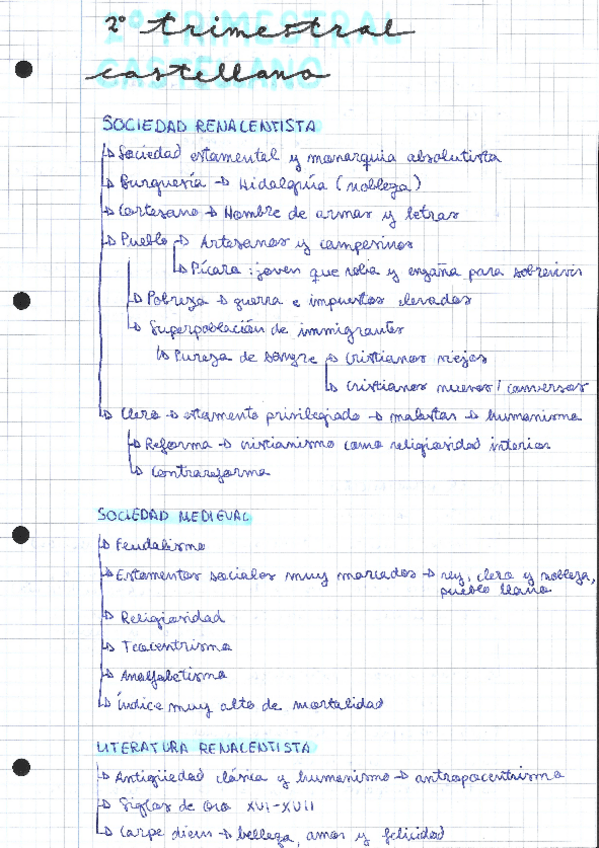 2º trimestral
castellano
SOCIEDAD RENACENTISTA
↳ Sociedad estamental y monarquia absolutista
↳ Burguesía → Hidalguía (nobleza)
↳ Cortesano → Hombre de armas y letras
↳ Pueblo → Artesanos y campesinos
↳ Pícaro: joven que roba y engaña para sobrevivir
↳ Pobreza → guerra e impuestos elevados
↳ Superpoblación de immigrantes
↳ Pureza de sangre → Cristianos viejos
↳ Cristianos nuevos / conversos
↳ Clero → estamento privilegiado → malestar → humanismo
↳ Reforma → cristianismo como religiosidad interior
↳ Contrareforma
SOCIEDAD MEDIEVAL
↳ Feudalismo
↳ Estamentos sociales muy marcados → rey, clero y nobleza,
pueblo llano
↳ Religiosidad
↳ Teocentrismo
↳ Analfabetismo
↳ Índice muy alto de mortalidad
LITERATURA RENACENTISTA
↳ Antigüedad clásica y humanismo → antropocentrismo
↳ Siglos de oro XVI-XVII
↳ Carpe diem → belleza, amor y felicidad